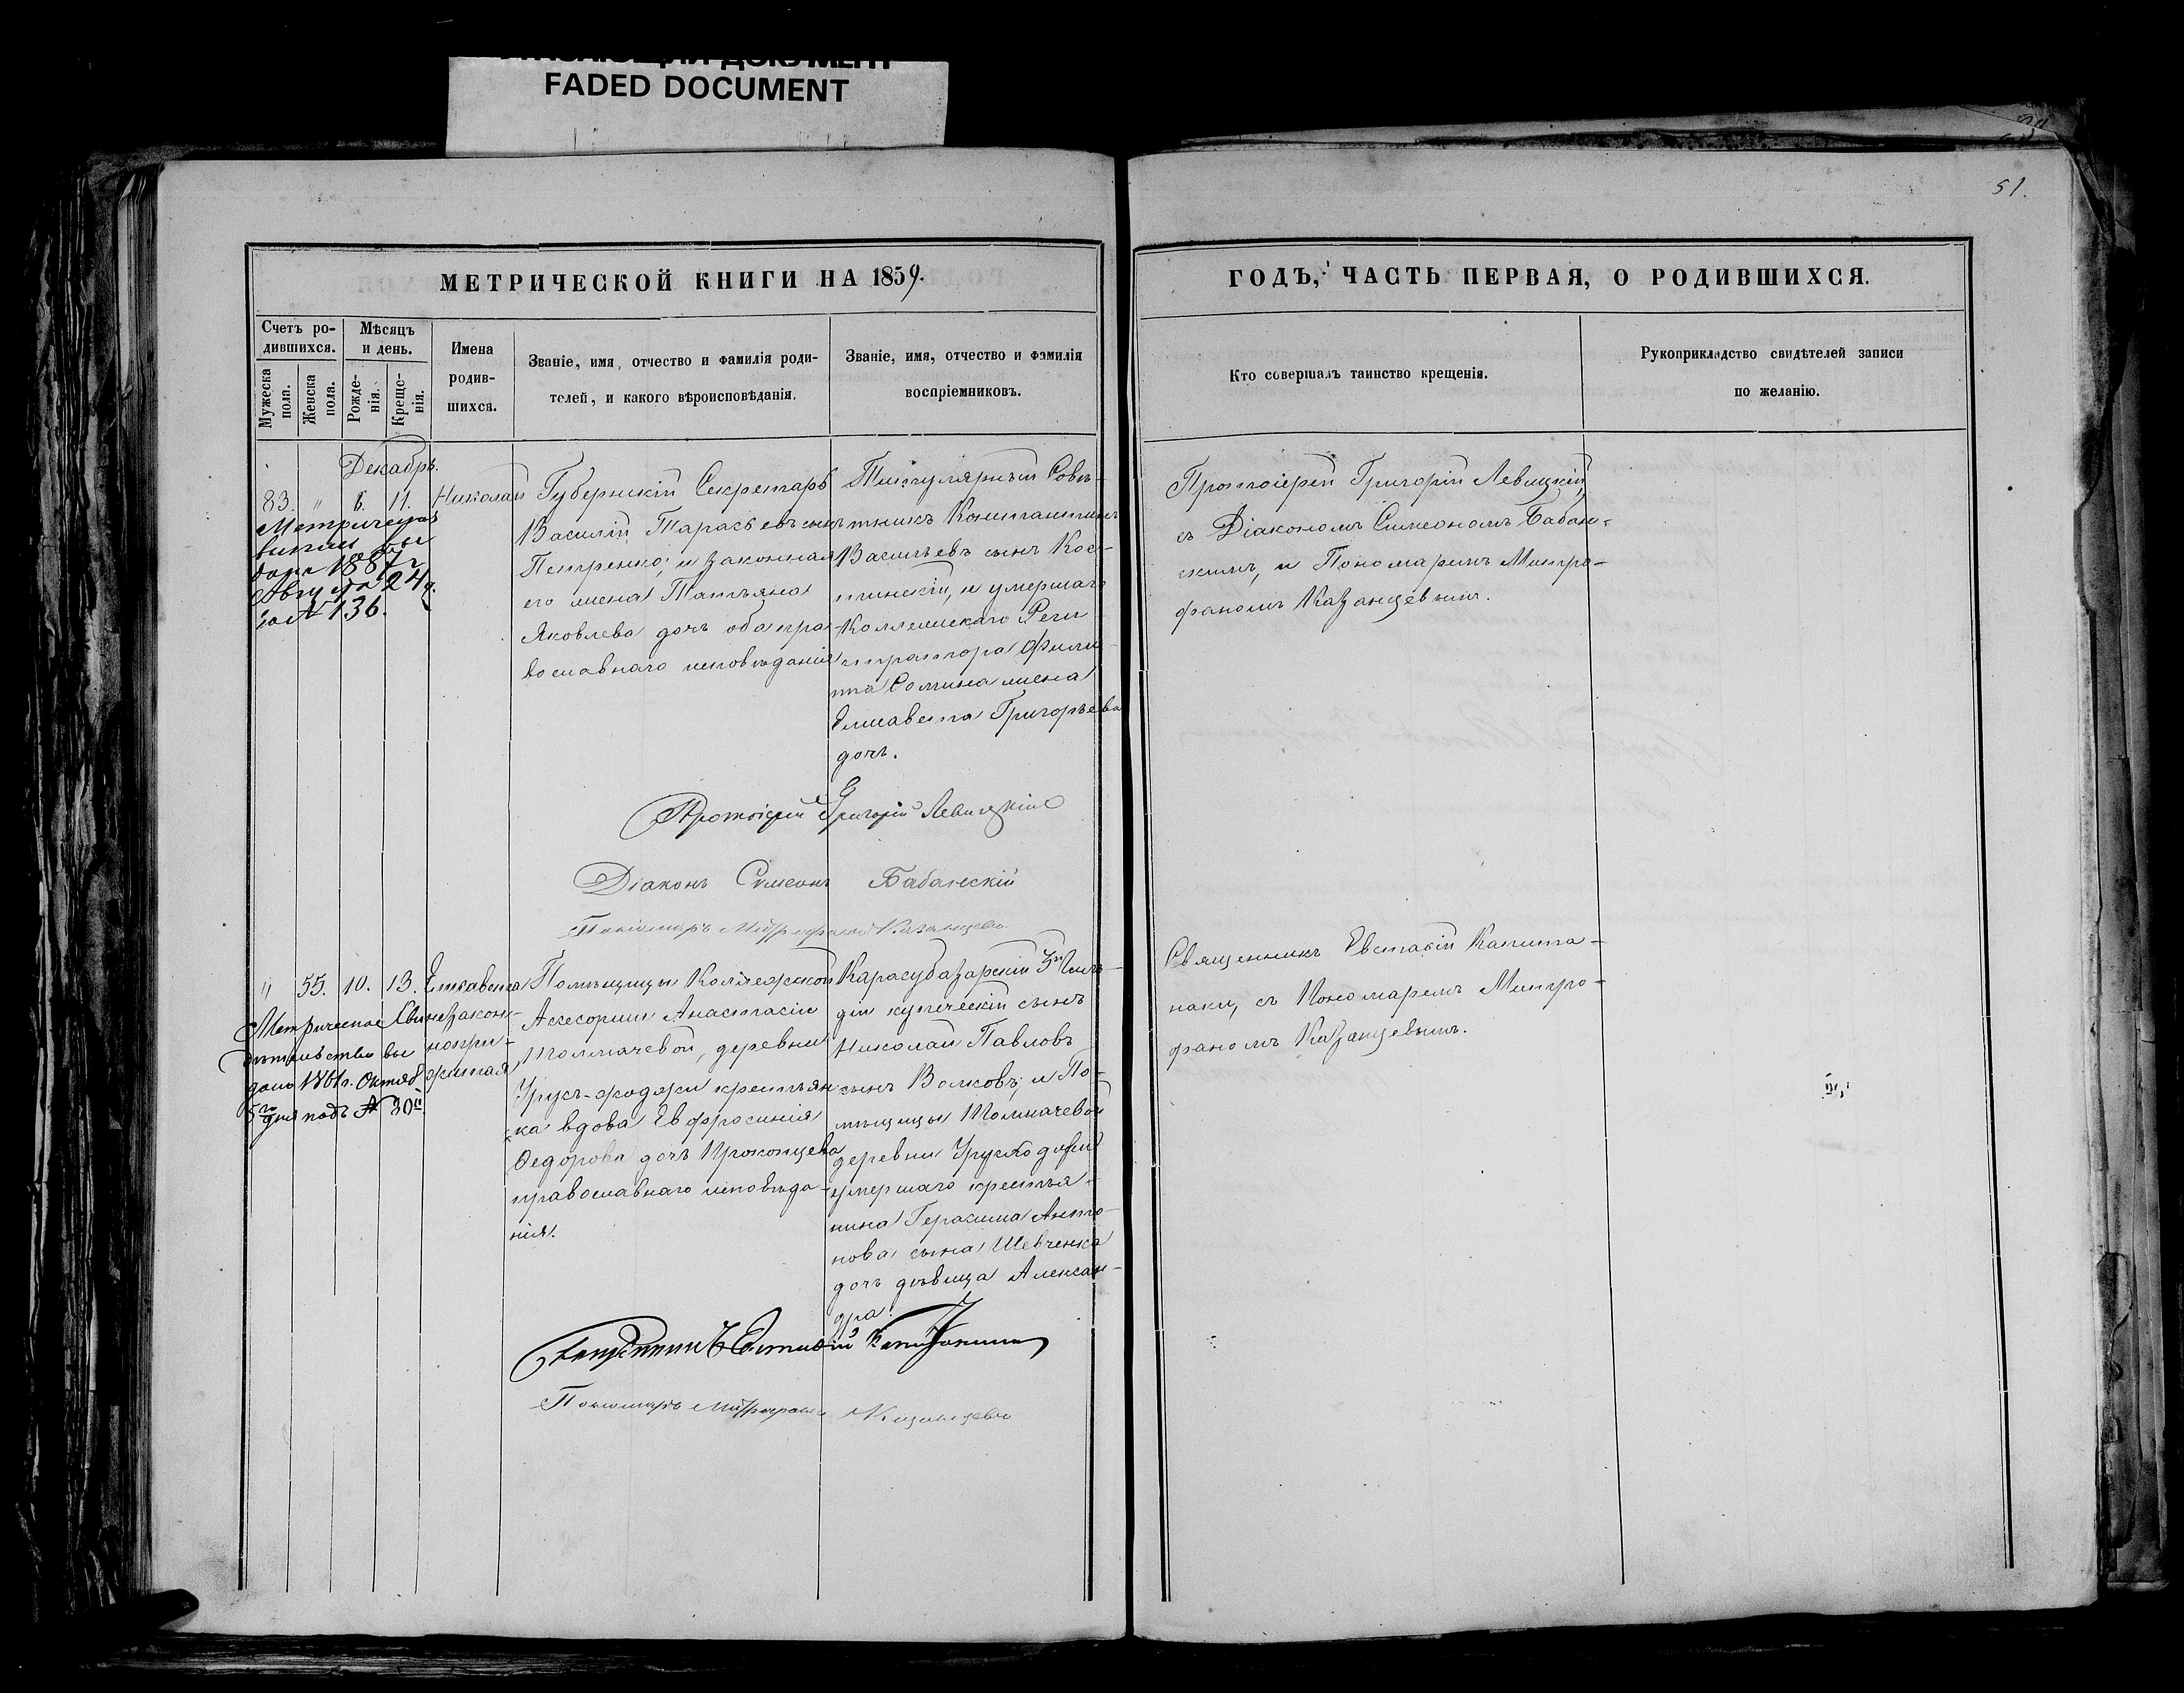 FADED DOCUMENT
51.
МЕТРИЧЕСКОЙ КНИГИ НА 1859.
ГОДЪ, ЧАСТЬ ПЕРВАЯ, О РОДИВШИХСЯ.
Счетъ ро-
дившихся.
Мужеска
пола.
Женска
пола.
Мѣсяцъ
и день.
Рожде-
нія.
Креще-
нія.
Имена
родив-
шихся.
Званіе, имя, отчество и фамилія роди-
телей, и какого вѣроисповѣданія.
Званіе, имя, отчество и фамилія
воспріемниковъ.
Кто совершалъ таинство крещенія.
Рукоприкладство свидѣтелей записи
по желанію.
Декабрь.
83. " 6. 11. Николай
Метрическая
выпись вы
дана 1887 г
Августа 24 д.
за № 136.
Губернскій Секретарь
Василій Тарасьевъ сынъ
Петренко; и законная
его жена Татьяна
Яковлева дочь оба пра-
вославнаго исповѣданія
Титулярный Совѣ-
тникъ Константинъ
Васильевъ сынъ Кос-
тинскій, и умершаго
Коллежскаго Реги-
стратора Филип-
па Сомина жена
Елисавета Григорьева
дочь.
Протоіерей Григорій Левицкій,
съ Діакономъ Симеономъ Бабан-
скимъ, и Пономаремъ Митро-
фаномъ Казанцевымъ.
Протоіерей Григорій Левицкій
Діаконъ Симеонъ Бабанскій
Пономарь Митрофанъ Казанцевъ
" 55. 10. 13. Елисавета
незакон-
норож-
Метрическое Сви
дѣтельство вы
дано 1861 г. Октяб
5го дня подъ № 30й
Помѣщицы Коллежской
Асесорши Анастасіи
Толмачевой, деревни
Урусъ-ходжи крестьян
ка вдова Евфросинія
Федорова дочь Прокопцева
православнаго исповѣда-
нія.
Карасубазарскій 3й Гиль-
діи купеческій сынъ
Николай Павловъ
сынъ Волковъ; и По-
мѣщицы Толмачевой
деревни Урусходжи
умершаго крестья-
нина Герасима Анто-
нова сына Шевченка
дочь дѣвица Алексан-
дра.
Священникъ Евстафій Капита-
наки, съ Пономаремъ Митро-
фаномъ Казанцевымъ.
Священникъ Евстафій Капитанаки
Пономарь Митрофанъ Казанцевъ